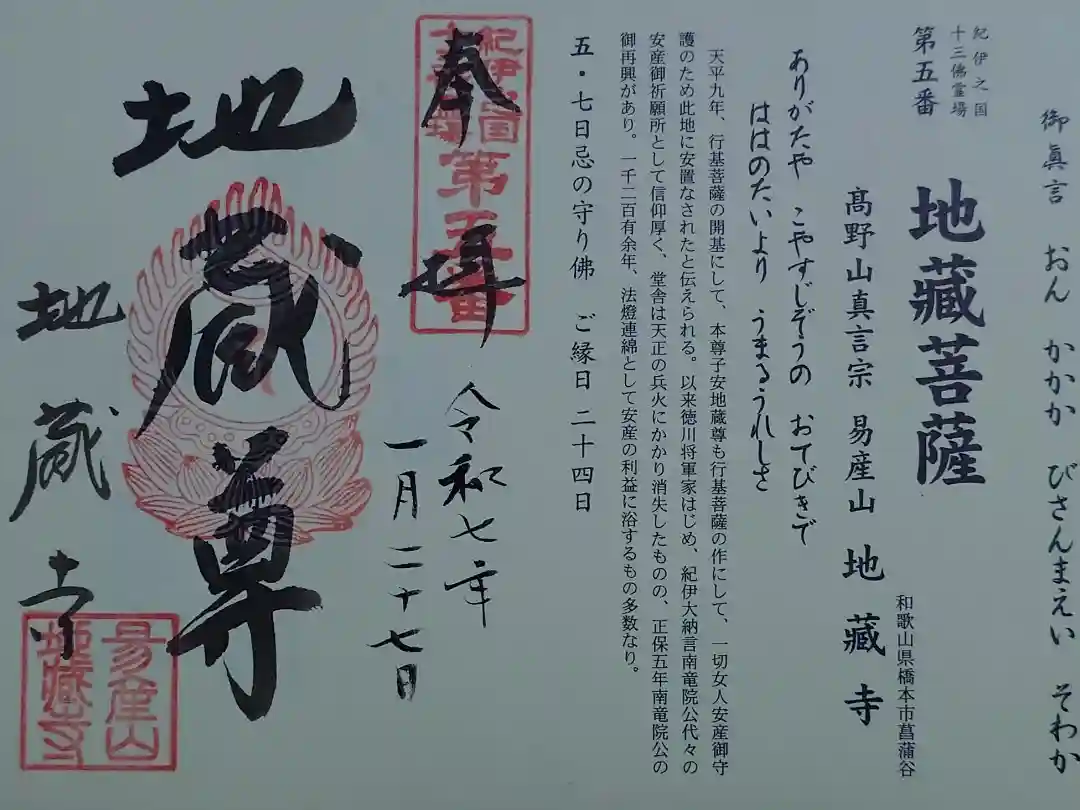 御眞言　おん　かかか　びさんまえい　そわか
紀伊之国
十三佛霊場
第五番
地藏菩薩
和歌山県橋本市菖蒲谷
髙野山真言宗　易産山　地藏寺
ありがたや　こやすじぞうの　おてびきで
ははのたいより　うまるうれしさ
天平九年、行基菩薩の開基にして、本尊子安地蔵尊も行基菩薩の作にして、一切女人安産御守
護のため此地に安置なされたと伝えられる。以来徳川将軍家はじめ、紀伊大納言南竜院公代々の
安産御祈願所として信仰厚く、堂舎は天正の兵火にかかり消失したものの、正保五年南竜院公の
御再興があり。一千二百有余年、法燈連綿として安産の利益に浴するもの多数なり。
五・七日忌の守り佛　ご縁日　二十四日
紀伊之国
十三佛霊場
第五番
奉拝
令和七年
一月二十七日
地蔵尊
地蔵寺
易産山
地藏寺